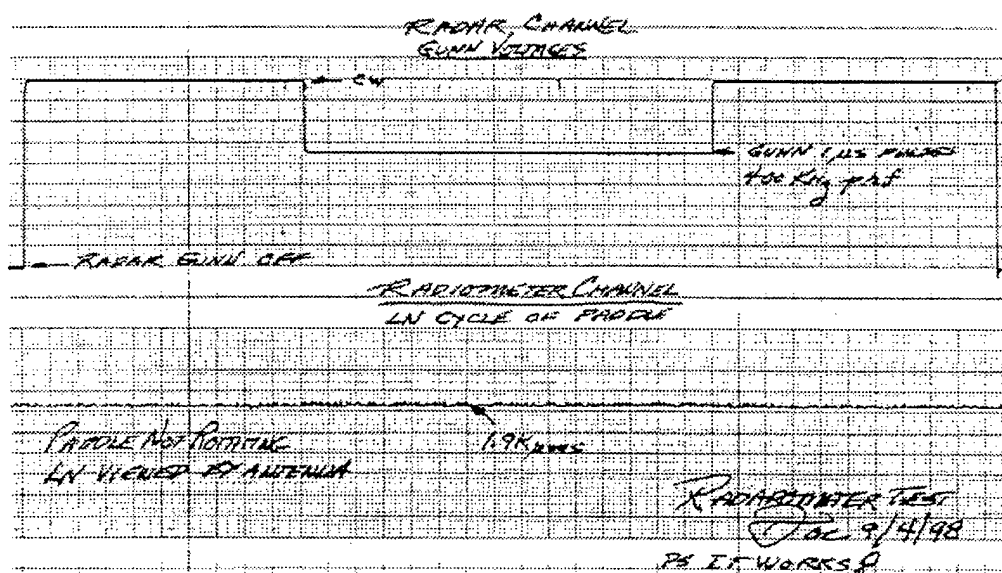 RADAR CHANNEL
GUNN VOLTAGES
CW
GUNN 1 µs PULSES
400 KHz prf
RADAR GUNN OFF
RADIOMETER CHANNEL
LN CYCLE OF PADDLE
PADDLE NOT ROTATING
LN VIEWED BY ANTENNA
1.9K rms
RADAROMETER TEST
9/4/98
PS IT WORKS!